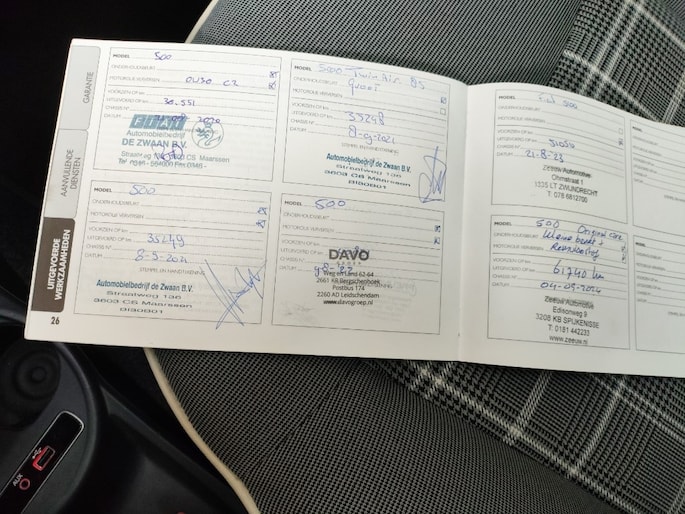 GARANTIE
AANVULLENDE
DIENSTEN
UITGEVOERDE
WERKZAAMHEDEN
26
MODEL 500
ONDERHOUDSBEURT
MOTOROLIE VERVERSEN
VOORZIEN OP km
UITGEVOERD OP km 30.551
CHASSIS N°
DATUM 2020
FIAT
Automobielbedrijf
DE ZWAAN B.V.
Straatweg CS Maarssen
MODEL 500 Twin Air 85
ONDERHOUDSBEURT
MOTOROLIE VERVERSEN
VOORZIEN OP km
UITGEVOERD OP km 35248
CHASSIS N°
DATUM 8-09-2021
STEMPEL EN HANDTEKENING
Automobielbedrijf de Zwaan B.V.
Straatweg 136
3603 CS Maarssen
MODEL 500
ONDERHOUDSBEURT
MOTOROLIE VERVERSEN
VOORZIEN OP km
UITGEVOERD OP km 35249
CHASSIS N°
DATUM 8-9-2021
STEMPEL EN HANDTEKENING
Automobielbedrijf de Zwaan B.V.
Straatweg 136
3603 CS Maarssen
MODEL 500
ONDERHOUDSBEURT
MOTOROLIE VERVERSEN
VOORZIEN OP km
UITGEVOERD OP km
CHASSIS N°
DATUM
DAVO
GROEP
Weg en Land 62-64
2661 KB Bergschenhoek
Postbus 174
2260 AD Leidschendam
www.davogroep.nl
MODEL 500
ONDERHOUDSBEURT
MOTOROLIE VERVERSEN
VOORZIEN OP km
UITGEVOERD OP km
CHASSIS N°
DATUM 21-8-23
Zeeuw Automotive
Ohmstraat 1
LT ZWIJNDRECHT
T: 078 6812700
MODEL 500 Original care
ONDERHOUDSBEURT Kleine beurt +
MOTOROLIE VERVERSEN Remvloeistof
VOORZIEN OP km
UITGEVOERD OP km 61740 km
CHASSIS N°
DATUM 04-09-2024
Zeeuw Automotive
Edisonweg 9
3208 KB SPIJKENISSE
T: 0181 442233
www.zeeuw.nl
MODEL
ONDERHOUDSBEURT
MOTOROLIE
VOORZIEN OP
UITGEVOERD
CHASSIS N°
DATUM
AUX